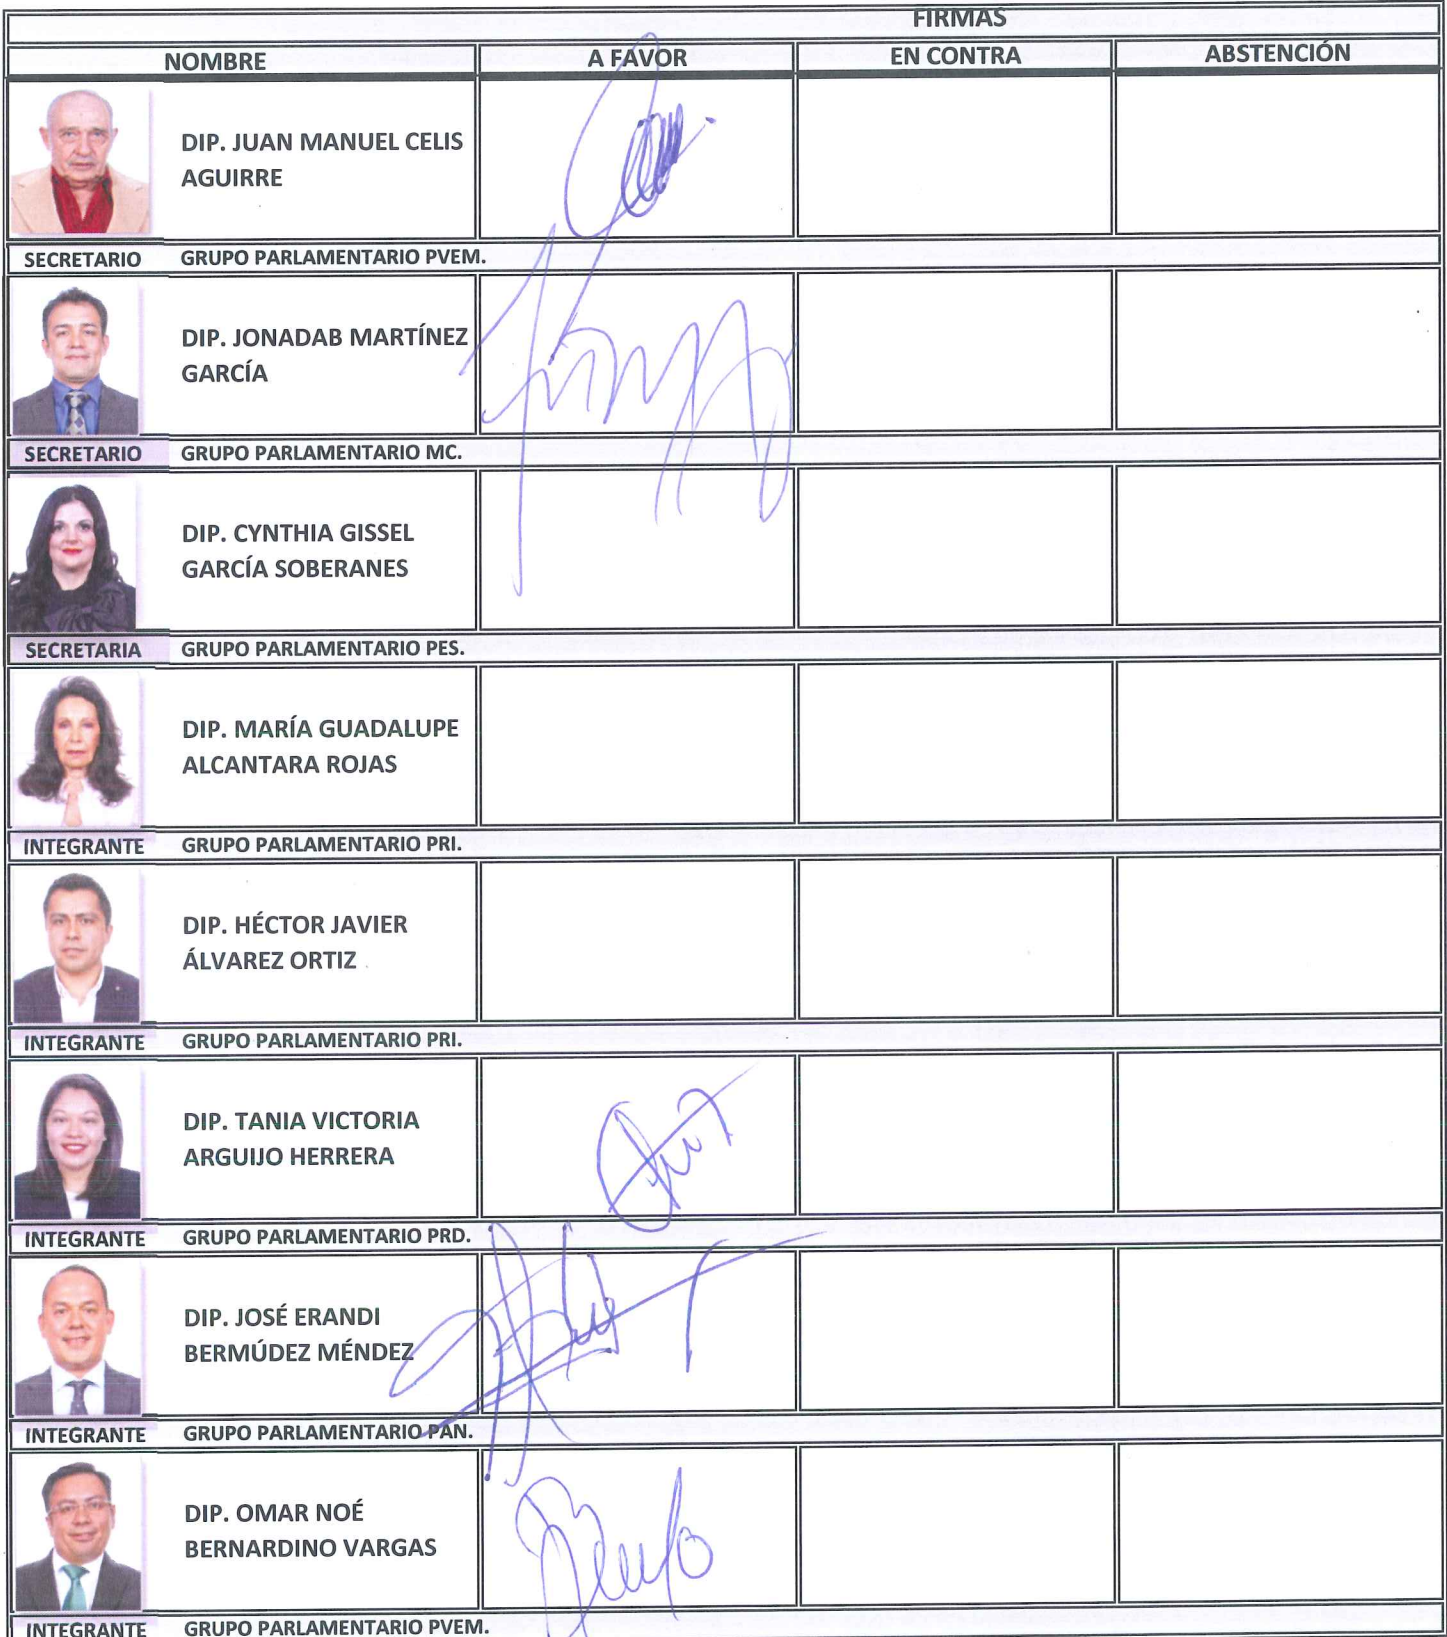 FIRMAS
NOMBRE A FAVOR EN CONTRA ABSTENCIÓN
DIP. JUAN MANUEL CELIS
AGUIRRE
SECRETARIO GRUPO PARLAMENTARIO PVEM.
DIP. JONADAB MARTÍNEZ
GARCÍA
SECRETARIO GRUPO PARLAMENTARIO MC.
DIP. CYNTHIA GISSEL
GARCÍA SOBERANES
SECRETARIA GRUPO PARLAMENTARIO PES.
DIP. MARÍA GUADALUPE
ALCANTARA ROJAS
INTEGRANTE GRUPO PARLAMENTARIO PRI.
DIP. HÉCTOR JAVIER
ÁLVAREZ ORTIZ
INTEGRANTE GRUPO PARLAMENTARIO PRI.
DIP. TANIA VICTORIA
ARGUIJO HERRERA
INTEGRANTE GRUPO PARLAMENTARIO PRD.
DIP. JOSÉ ERANDI
BERMÚDEZ MÉNDEZ
INTEGRANTE GRUPO PARLAMENTARIO PAN.
DIP. OMAR NOÉ
BERNARDINO VARGAS
INTEGRANTE GRUPO PARLAMENTARIO PVEM.